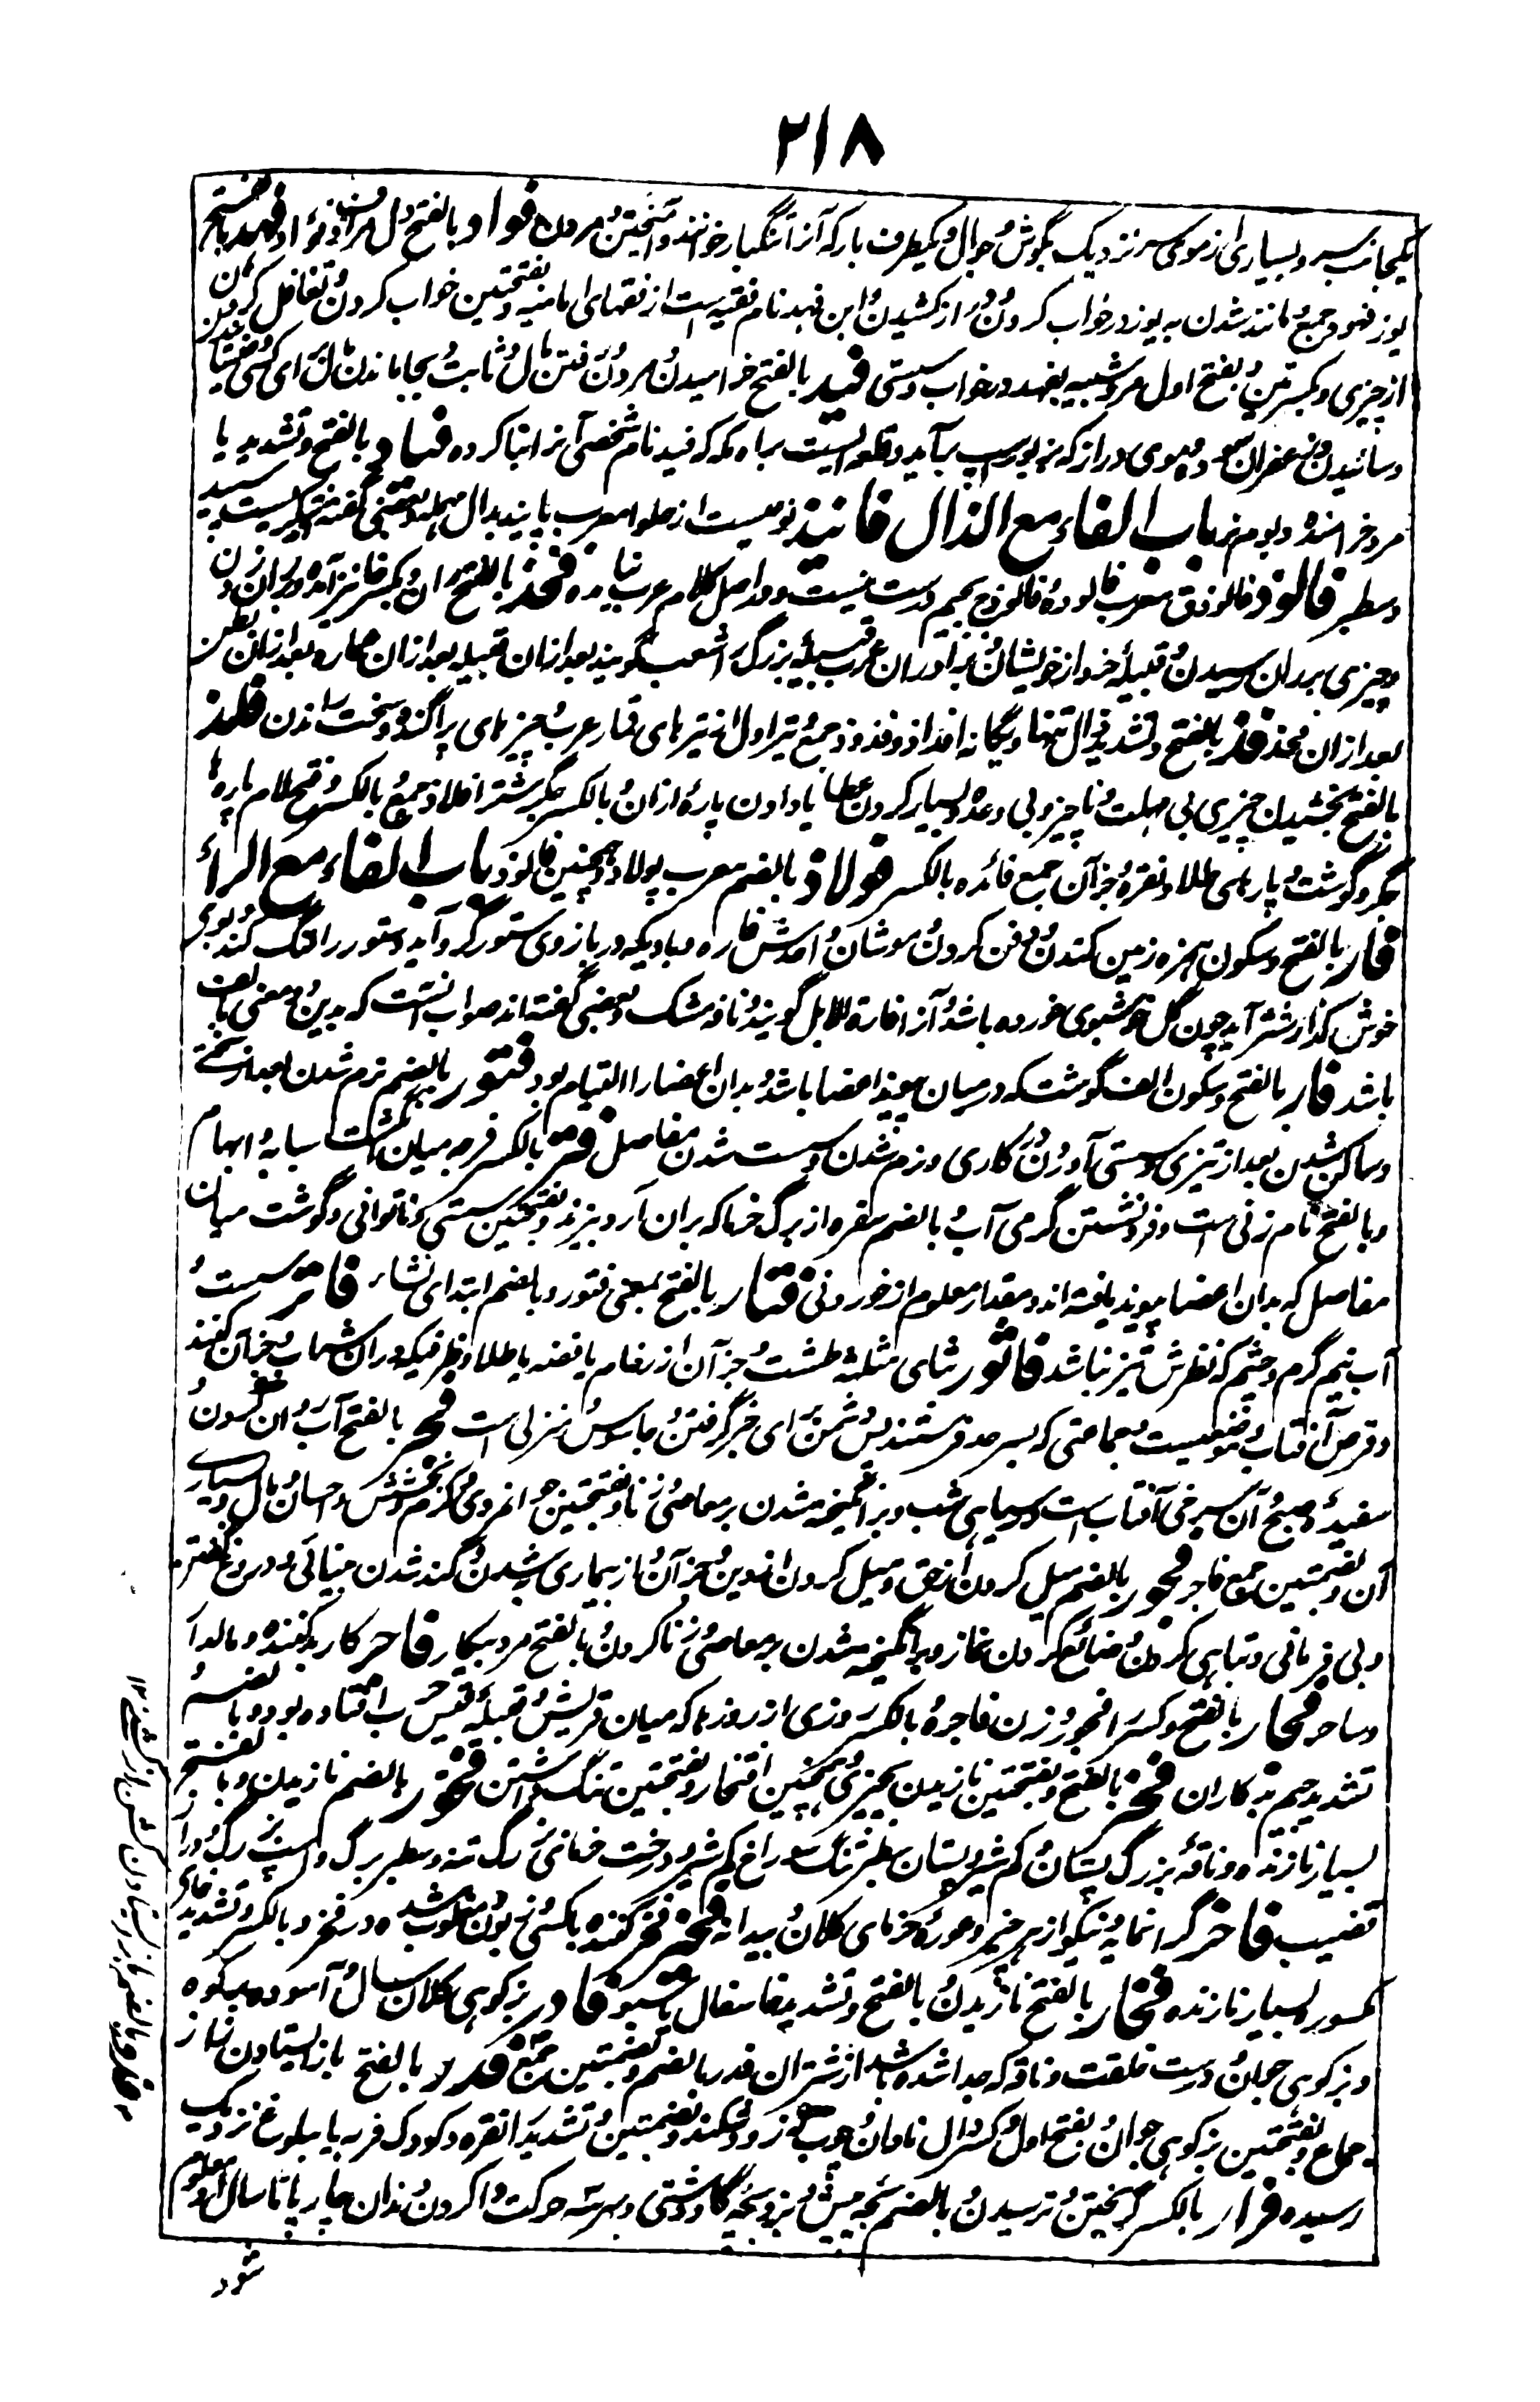 ۲۱۸
یکجانب سر و بسیاری از موی سر نزدیک بگوش و جوال و یکطرف بار که آنرا تنگبار خوانند و آمیختن و مردن فواد بالفتح دل فهد بالفتح
یوز فهود جمع و مانند شدن به یوز در خواب کردن و دراز کشیدن و ابن فهد نام فقیهیست از فقهای امامیه و بفتحتین خواب کردن و تغافل کردن
از چیزی و بکسرتین و بفتح اول مرد شبیه بفهد در خواب و سستی فید بالفتح خرامیدن و مردن و رفتن مال و ثابت و بجا ماندن مال برای کسی
و سائیدن زعفران سوده و موی دراز که بر پوز اسپ برآید و قلعه ایست براه مکه که فید نام شخصی آنرا بنا کرده فیاد بالفتح و تشدید یا
مرد خرامنده و بوم نر باب الفاء مع الذال فانیذ نوعیست از حلوا معرب پانید بدال مهمله و بعضی گفته
و سطبر فالوذ فالوذق معرب فالوده و فالوذج بجیم درست نیست و در اصل کلام عرب نیامده فخذ بالفتح ران و بکسر خا نیز آمده و بر ران زدن
و چیزی بر ران رسیدن و قبیلهٔ خرد از خویشان و برادران عرب قبیلهٔ بزرگ را شعب گویند بعد ازان قبیله بعد ازان عماره بعد ازان بطن
بعد ازان فخذ فذ بالفتح و تشدید ذال تنها و یگانه افذاذ و فذوذ جمع و تیر اول از تیرهای قمار عرب و چیزهای پراگنده و سخت راندن فلذ
بالفتح بخشیدن چیزی بی مهلت و ناچیز و بی وعده و بسیار کردن عطا یا دادن پارهٔ ازان و بالکسر جگر شتر افلاذ جمع و بالکسر و فتح لام پارها
جگر و گوشت و پارهای طلا و نقره و جز آن جمع فلذه بالکسر فولاذ بالضم معرب پولاد و همچنین فالوذ باب الفاء مع الراء
فار بالفتح و سکون همزه زمین کندن و دفن کردن و موشان واحدش فاره و بادیکه در بازوی ستور گرد آید و ستور را لنگ کند و بوی
خوش که از شتر آید چون گل خوشبوی خورده باشد و آنرا فارة الابل گویند و نافه مشک و بعضی گفته اند صواب آنست که بدین دو معنی بالف
باشد فار بالفتح و سکون الف گوشت که در میان پیوند اعضا باشد و بدان اعضا را التیام بود فتور بالضم نرم شدن بعد از سختی
و ساکن شدن بعد از تیزی و سستی آوردن در کاری و نرم شدن و سست شدن مفاصل فتر بالکسر فرجه میان انگشت سبابه و ابهام
و بالفتح نام زنی است و فرونشستن گرمی آب و بالضم سفره از برگ خرما که بران آرد بیزند و بفتحتین سستی و ناتوانی و گوشت میان
مفاصل که بدان اعضا پیوند یافته اند و مقدار معلوم از خوردنی فتار بالفتح بمعنی فتور و بالضم ابتدای نشاء فاتر سست و
آب نیم گرم و چشم که نظرش تیز نباشد فاثور بثای مثلثه طشت و جز آن از رخام یا نقره یا طلا و ظرفیکه دران شراب و جز آن کنند
و قرص آفتاب و موضعیست و جماعتی که بسرحد فرستند پس دشمن برای خبر گرفتن و جاسوس و منزلی است فجر بالفتح آب روان کردن و
سفیدهٔ صبح و آن سرخی آفتاب است در سیاهی شب و برانگیخته شدن بر معاصی و زنا و بفتحتین جوانمردی و کرم و بخشش و احسان و مال و بسیاری
آن و بضمتین جمع فاجر فجور بالضم میل کردن از حق و میل کردن از دین و جز آن و از بیماری به شدن و کند شدن بینائی و دروغ گفتن
و بی فرمانی و تباهی کردن و ضائع کردن نماز و برانگیخته شدن بر معاصی و زنا کردن و بالفتح مرد بدکار فاجر کار بد کننده و مالدار
و ساحر فجار بالفتح و کسر را فجور و زن فاجره و بالکسر روزی از روزها که میان قریش و قبیلهٔ قیس حرب افتاده بود و بالضم و
تشدید جیم بدکاران فخر بالفتح و بفتحتین نازیدن بچیزی و همچنین افتخار و بفتحتین ننگ داشتن فخور بالضم نازیدن و بالفتح
بسیار نازنده و ناقهٔ بزرگ پستان و کم شیر و پستان سطبر تنگ سوراخ کم شیر و درخت خرمائی بزرگ تنه و سطبر برگ و اسپ بزرگ و دراز
قضیب فاخر گرانمایه و نیکو از هر چیز و غورهٔ خرمای کلان و بیدانه فخیر فخر کننده با کسی و زبون و مغلوب شده در فخر و بالکسر و تشدید خای
مکسور بسیار نازنده فخار بالفتح نازیدن و بالفتح و تشدید خا سفال یا سبو فادر بز کوهی کلان سال و آسوده به کوه
و بز کوهی جوان و درست خلقت و ناقه که جدا شده باشد از شتران فدر بالضم و بضمتین جمع فدور بالفتح باز ایستادن نر از
جماع و بفتحتین بز کوهی جوان و بفتح اول و کسر دال نادان و چوب که زود بشکند و بضمتین و تشدید را نقره و کودک فربه یا ببلوغ نزدیک
رسیده فرار بالکسر گریختن و ترسیدن و بالضم بچه میش و بز و بچه گاو دشتی و بهر سه حرکت وا کردن دندان چارپا تا سال او معلوم
شود